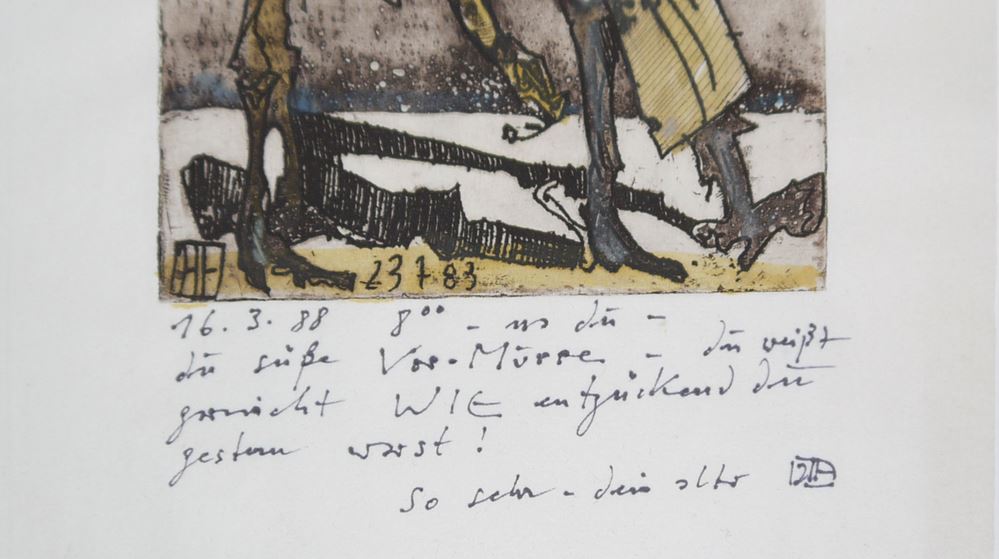 23 7 83
16. 3. 88 8⁰⁰ - na du -
du süße - du weißt
garnicht WIE entzückend du
gestern warst!
So sehr - dein alter